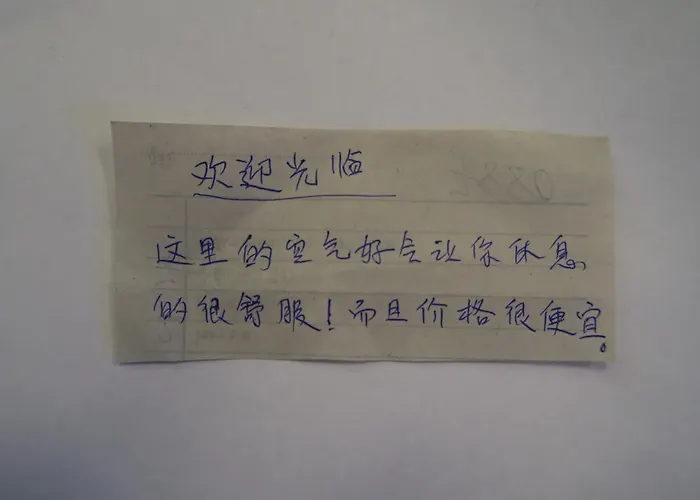 欢迎光临
这里的空气好会让你休息
的很舒服！而且价格很便宜。